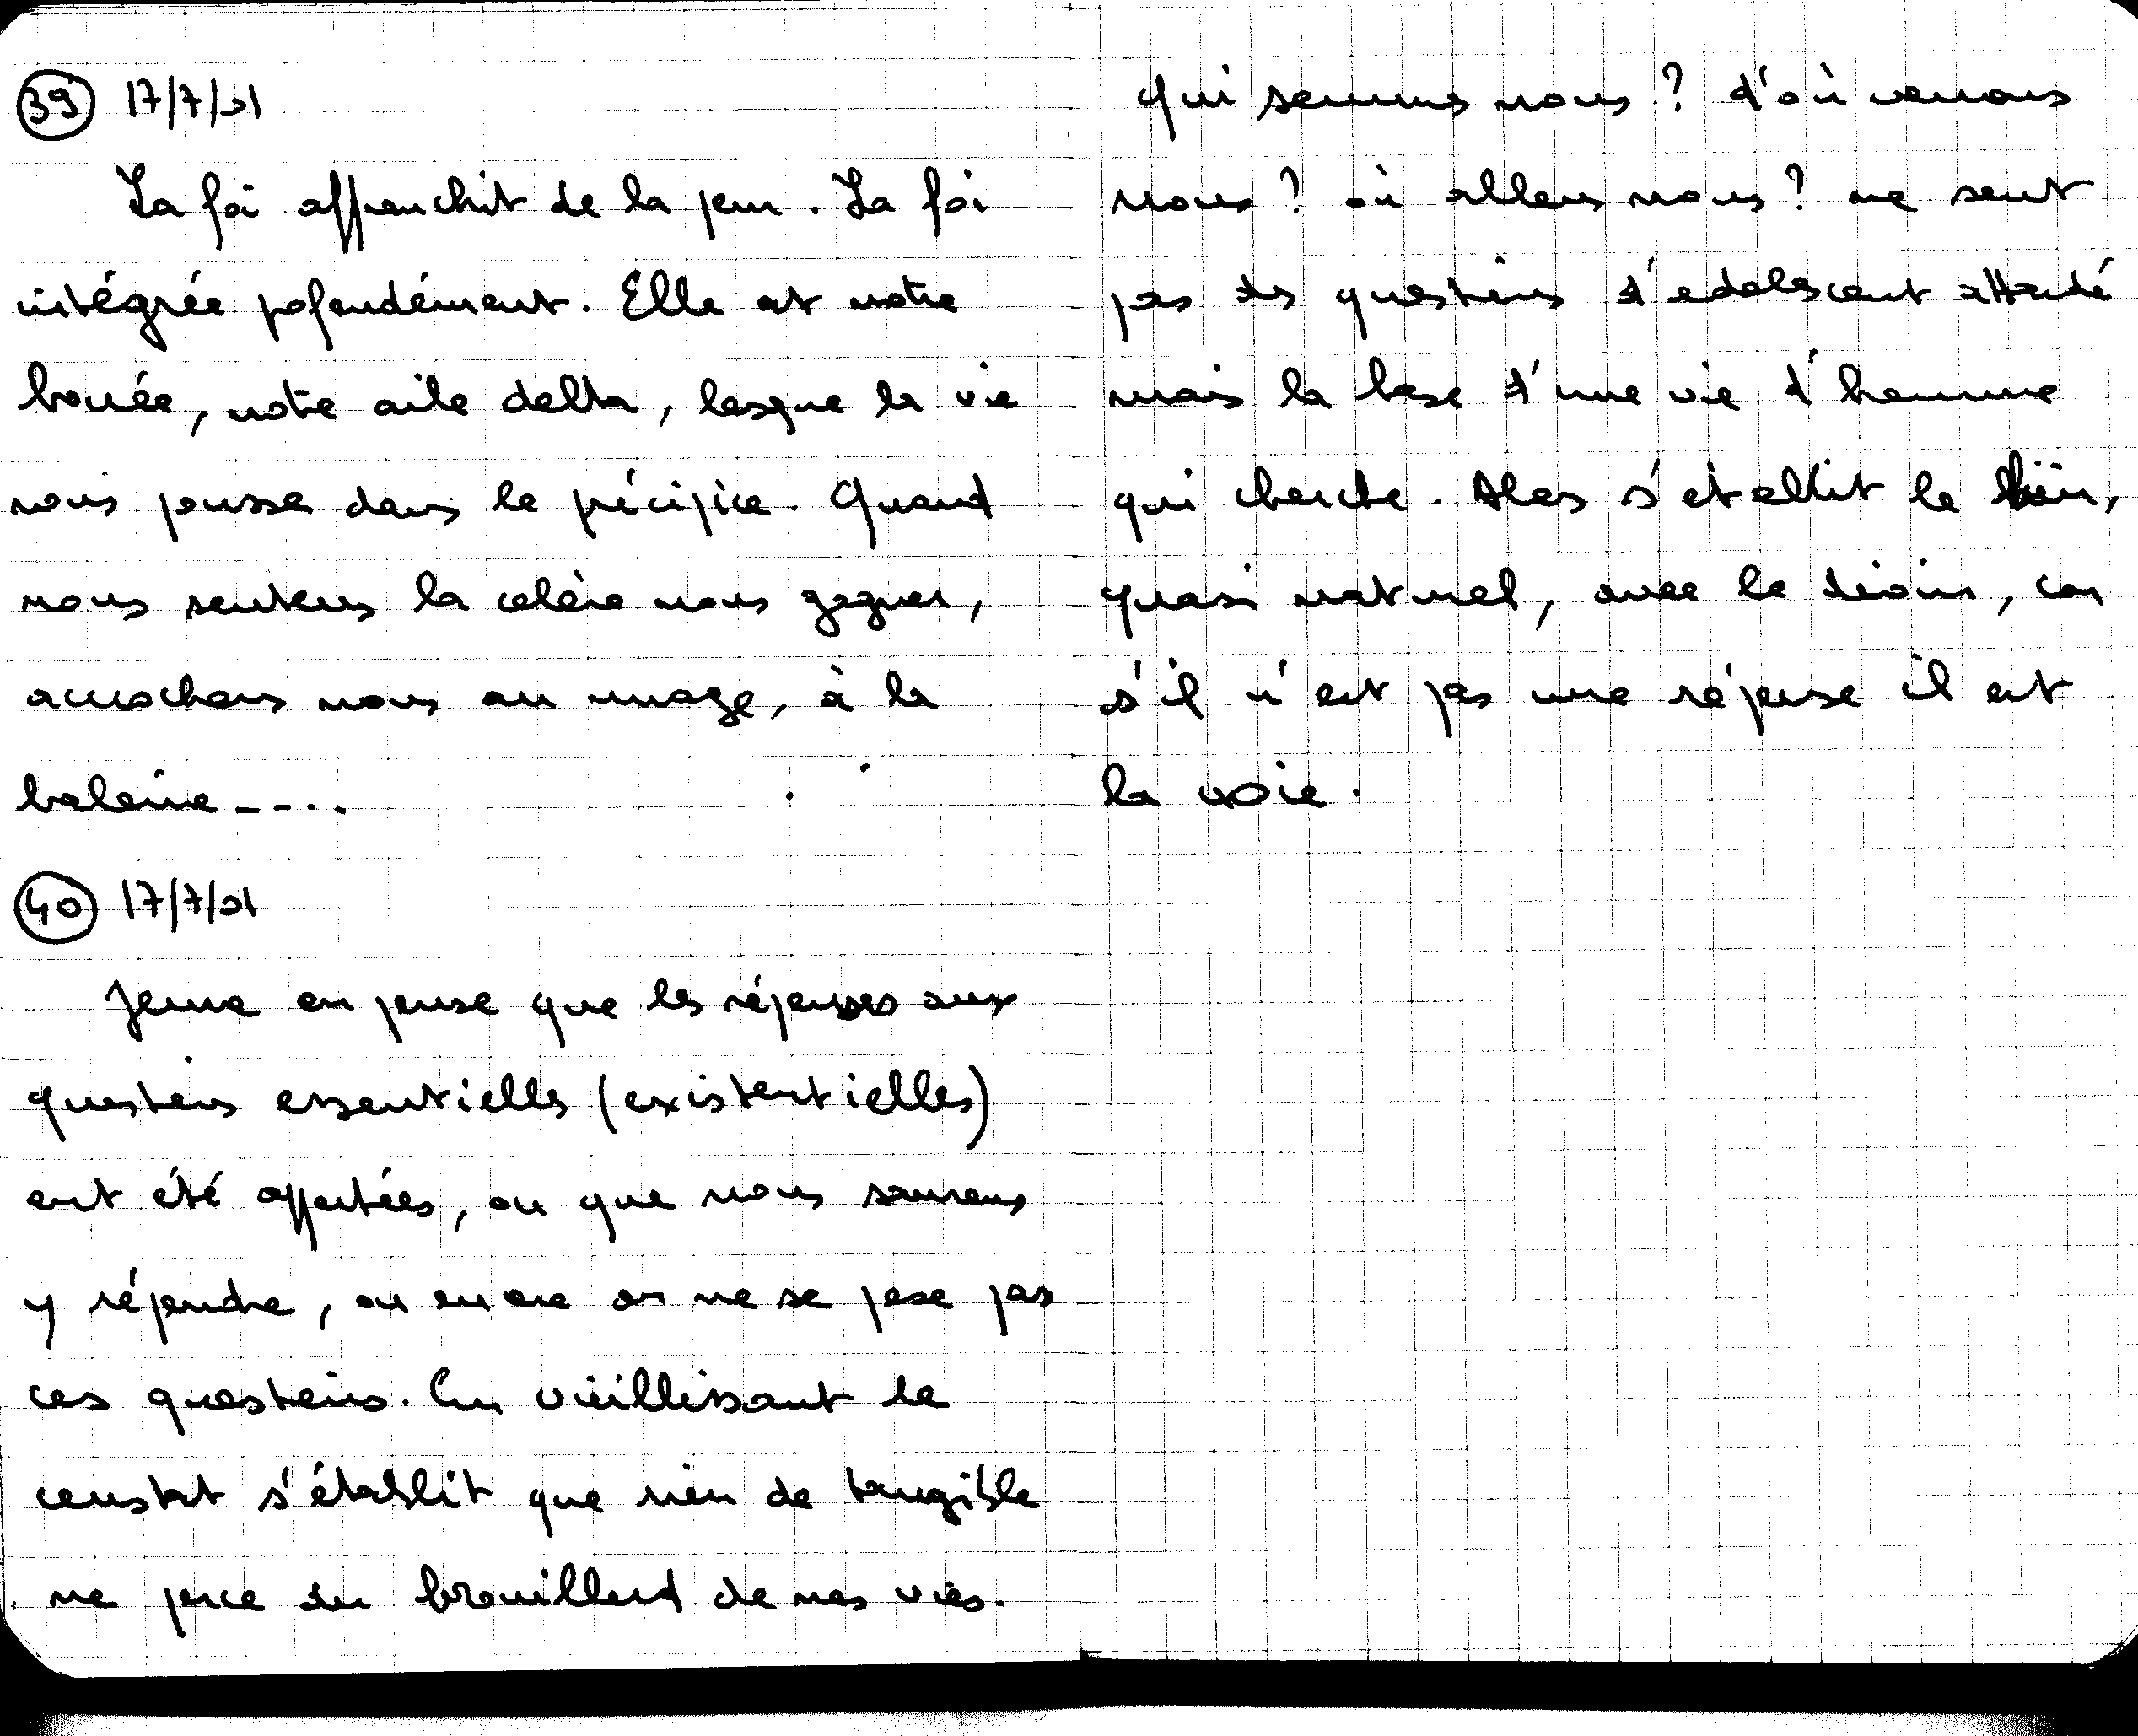 39 17/7/01
La foi affranchit de la peur. La foi
intégrée profondément. Elle est notre
bouée, notre aile delta, lorsque la vie
nous pousse dans le précipice. Quand
nous sentons la colère nous gagner,
accrochons nous au nuage, à la
baleine----.
40 17/7/01
Jeune on pense que les réponses aux
questions essentielles (existentielles)
ont été apportées, ou que nous saurons
y répondre, ou encore on ne se pose pas
ces questions. En vieillissant le
constat s'établit que rien de tangible
ne perce du brouillard de nos vies.
Qui sommes nous ? d'où venons
nous ? où allons nous ? ne sont
pas des questions d'adolescent attardé
mais la base d'une vie d'homme
qui cherche. Alors s'établit le lien,
quasi naturel, avec le divin, car
s'il n'est pas une réponse il est
la voie.